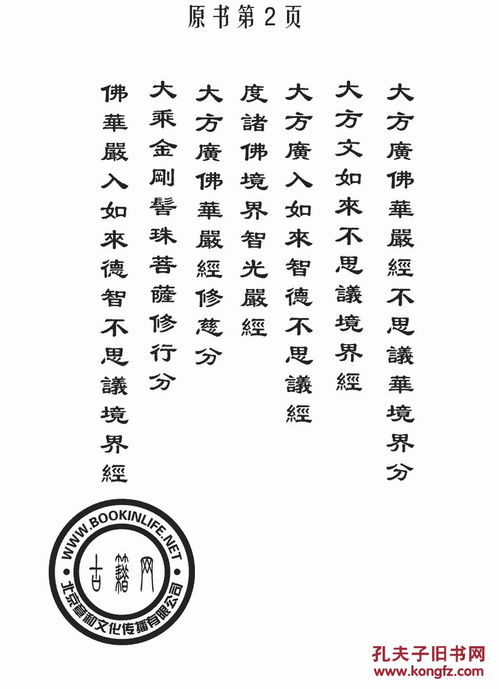 原书第2页
大方廣佛華嚴經不思議華境界分
大方文如來不思議境界經
大方廣入如來智德不思議經
度諸佛境界智光嚴經
大方廣佛華嚴經修慈分
大乘金剛髻珠菩薩修行分
佛華嚴入如來德智不思議境界經
WWW.BOOKINLIFE.NET
古籍网
北京章和文化传播有限公司
孔夫子旧书网
www.kongfz.com